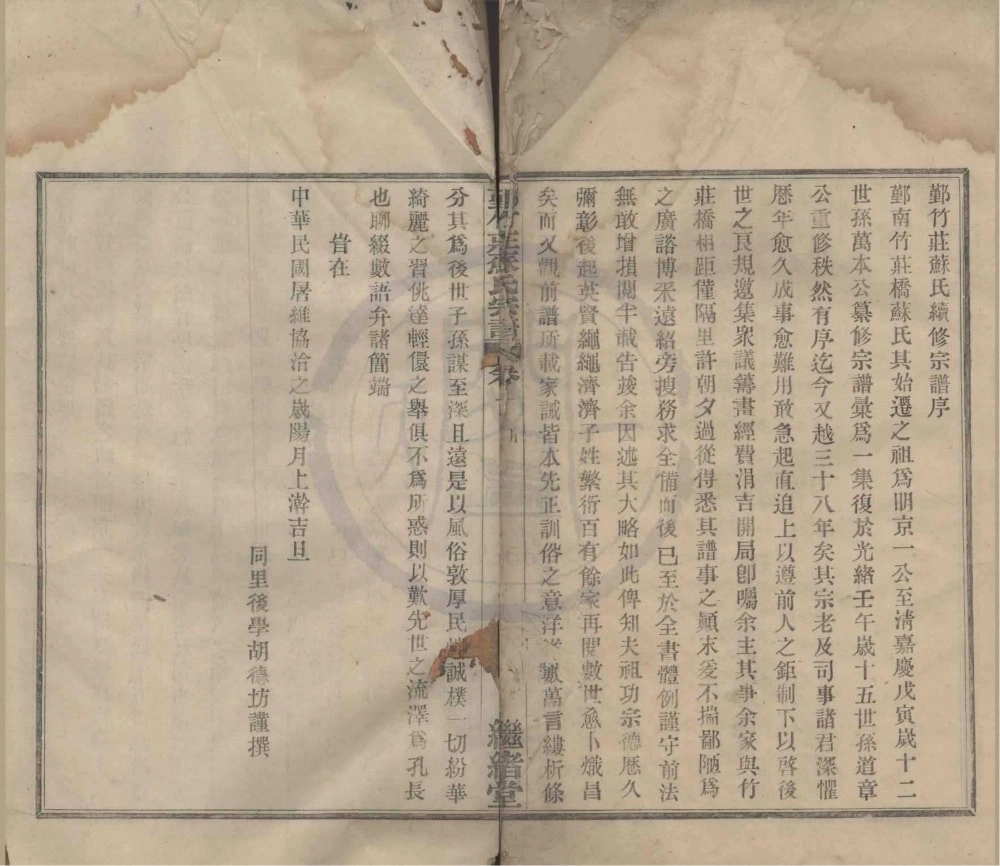 鄞竹莊蘇氏續修宗譜序
鄞南竹莊橋蘇氏其始遷之祖爲明京一公至淸嘉慶戊寅歲十二
世孫萬本公纂修宗譜彙爲一集復於光緒壬午歲十五世孫道章
公重修秩然有序迄今又越三十八年矣其宗老及司事諸君深懼
歷年愈久成事愈難用敢急起直追上以遵前人之鉅制下以啓後
世之良規邀集衆議籌畫經費涓吉開局卽囑余主其事余家與竹
莊橋相距僅隔里許朝夕過從得悉其譜事之顚末爰不揣鄙陋爲
之廣諮博采遠紹旁搜務求全備而後已至於全書體例謹守前法
無敢增損閱半載告竣余因述其大略如此俾知夫祖功宗德歷久
彌彰後起英賢繩繩濟濟子姓繁衍百有餘家再閱數世愈卜熾昌
矣而又觀前譜所載家誡皆本先正訓俗之意洋 數萬言縷析條
鄞竹莊蘇氏宗譜 卷 序
繼緒堂
分其爲後世子孫謀至深且遠是以風俗敦厚民 誠樸一切紛華
綺麗之習佻達輕儇之舉俱不爲所惑則以歎先世之流澤爲孔長
也聊綴數語弁諸簡端
旹在
中華民國屠維協洽之歲陽月上澣吉旦
同里後學胡德坊謹撰